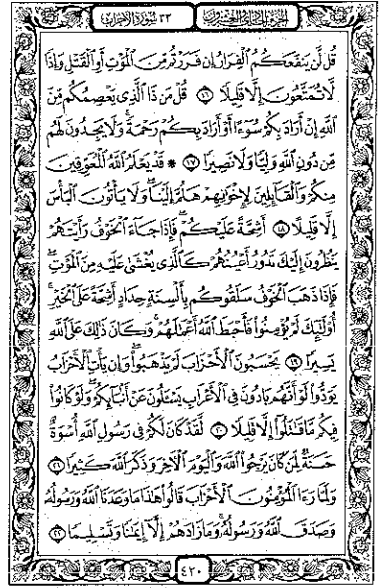 الجزء الحادي والعشرون ٣٣ سورة الأحزاب
قُل لَّن يَنفَعَكُمُ ٱلْفِرَارُ إِن فَرَرْتُم مِّنَ ٱلْمَوْتِ أَوِ ٱلْقَتْلِ وَإِذًا
لَّا تُمَتَّعُونَ إِلَّا قَلِيلًا ١٦ قُلْ مَن ذَا ٱلَّذِى يَعْصِمُكُم مِّنَ
ٱللَّهِ إِنْ أَرَادَ بِكُمْ سُوٓءًا أَوْ أَرَادَ بِكُمْ رَحْمَةً ۚ وَلَا يَجِدُونَ لَهُم
مِّن دُونِ ٱللَّهِ وَلِيًّا وَلَا نَصِيرًا ١٧ ۞ قَدْ يَعْلَمُ ٱللَّهُ ٱلْمُعَوِّقِينَ
مِنكُمْ وَٱلْقَآئِلِينَ لِإِخْوَٰنِهِمْ هَلُمَّ إِلَيْنَا ۖ وَلَا يَأْتُونَ ٱلْبَأْسَ
إِلَّا قَلِيلًا ١٨ أَشِحَّةً عَلَيْكُمْ ۖ فَإِذَا جَآءَ ٱلْخَوْفُ رَأَيْتَهُمْ
يَنظُرُونَ إِلَيْكَ تَدُورُ أَعْيُنُهُمْ كَٱلَّذِى يُغْشَىٰ عَلَيْهِ مِنَ ٱلْمَوْتِ ۖ
فَإِذَا ذَهَبَ ٱلْخَوْفُ سَلَقُوكُم بِأَلْسِنَةٍ حِدَادٍ أَشِحَّةً عَلَى ٱلْخَيْرِ ۚ
أُو۟لَٰٓئِكَ لَمْ يُؤْمِنُوا۟ فَأَحْبَطَ ٱللَّهُ أَعْمَٰلَهُمْ ۚ وَكَانَ ذَٰلِكَ عَلَى ٱللَّهِ
يَسِيرًا ١٩ يَحْسَبُونَ ٱلْأَحْزَابَ لَمْ يَذْهَبُوا۟ ۖ وَإِن يَأْتِ ٱلْأَحْزَابُ
يَوَدُّوا۟ لَوْ أَنَّهُم بَادُونَ فِى ٱلْأَعْرَابِ يَسْـَٔلُونَ عَنْ أَنۢبَآئِكُمْ ۖ وَلَوْ كَانُوا۟
فِيكُم مَّا قَٰتَلُوٓا۟ إِلَّا قَلِيلًا ٢٠ لَّقَدْ كَانَ لَكُمْ فِى رَسُولِ ٱللَّهِ أُسْوَةٌ
حَسَنَةٌ لِّمَن كَانَ يَرْجُوا۟ ٱللَّهَ وَٱلْيَوْمَ ٱلْـَٔاخِرَ وَذَكَرَ ٱللَّهَ كَثِيرًا ٢١
وَلَمَّا رَءَا ٱلْمُؤْمِنُونَ ٱلْأَحْزَابَ قَالُوا۟ هَٰذَا مَا وَعَدَنَا ٱللَّهُ وَرَسُولُهُۥ
وَصَدَقَ ٱللَّهُ وَرَسُولُهُۥ ۚ وَمَا زَادَهُمْ إِلَّآ إِيمَٰنًا وَتَسْلِيمًا ٢٢
٤٢٠